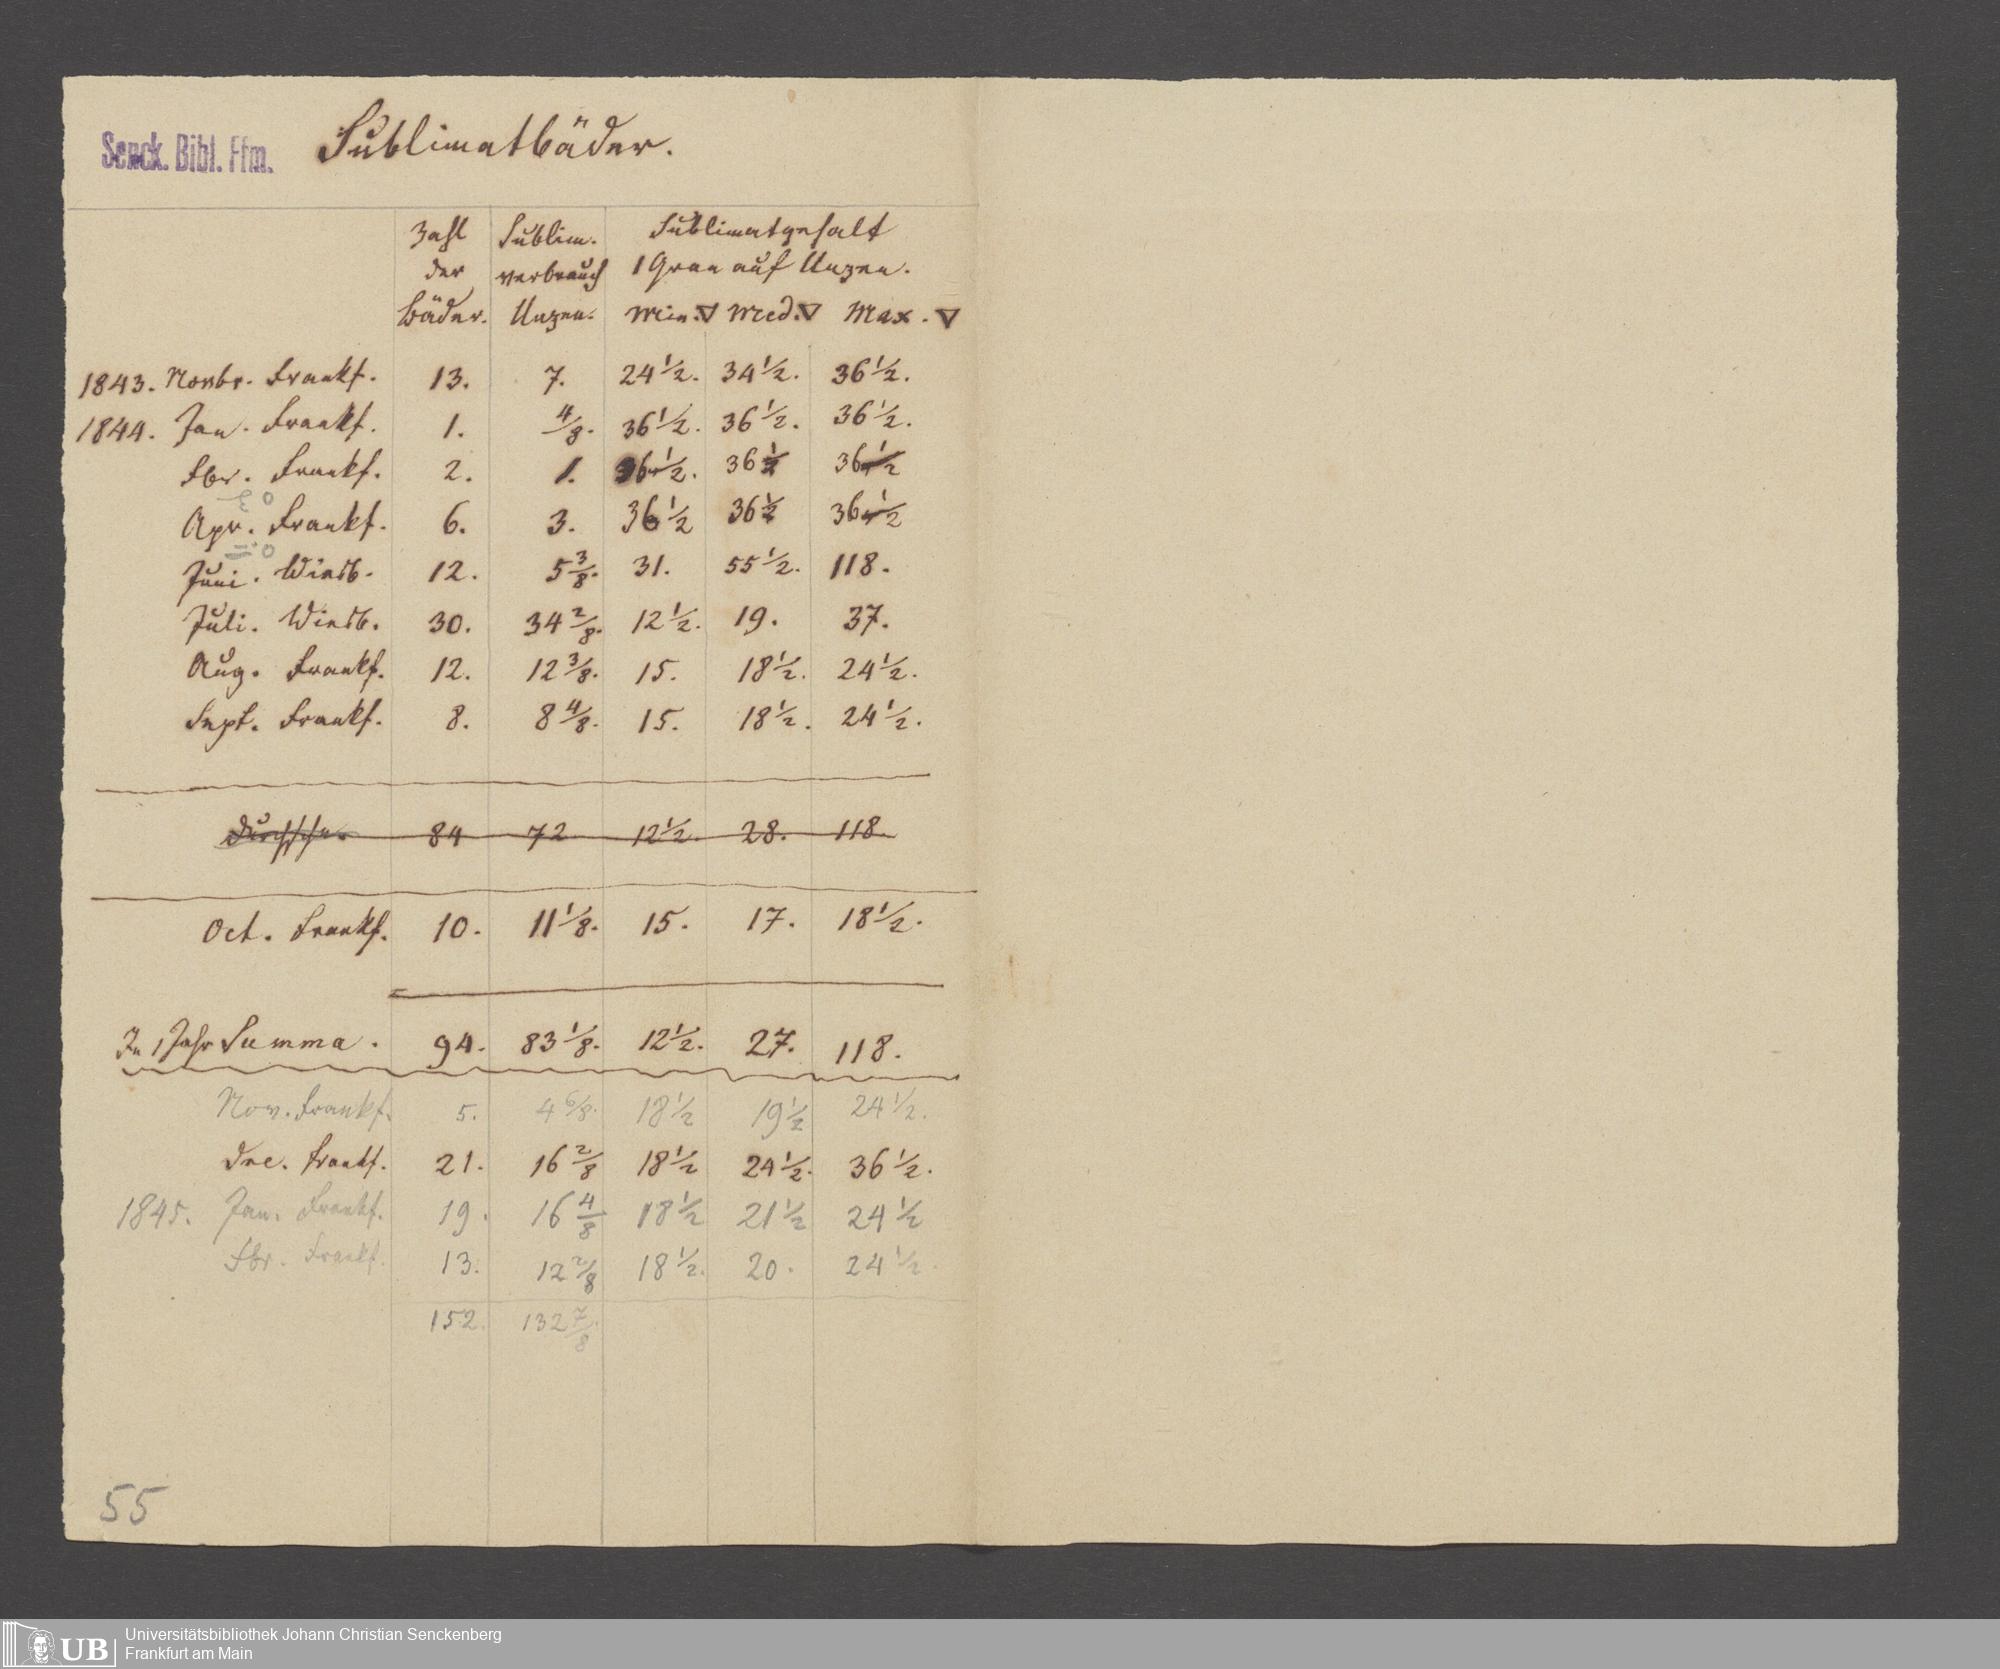 Senck. Bibl. Ffm.
Sublimatbäder.
Zahl der Bäder. Sublim. verbrauch Unzen. Sublimatgehalt 1 Gran auf Unzen.
Min. ▽ Med. ▽ Max. ▽
1843. Novbr. Frankf. 13. 7. 24 1/2. 34 1/2. 36 1/2.
1844. Jan. Frankf. 1. 4/8. 36 1/2. 36 1/2. 36 1/2.
Fbr. Frankf. 2. 1. 36 1/2. 36 1/2 36 1/2
Apr. Frankf. 6. 3. 36 1/2 36 1/2 36 1/2
Juni. Wiesb. 12. 5 3/8. 31. 55 1/2. 118.
Juli. Wiesb. 30. 34 2/8. 12 1/2. 19. 37.
Aug. Frankf. 12. 12 3/8. 15. 18 1/2. 24 1/2.
Sept. Frankf. 8. 8 4/8. 15. 18 1/2. 24 1/2.
Durchschn. 84 72 12 1/2. 28. 118.
Oct. Frankf. 10. 11 1/8. 15. 17. 18 1/2.
In 1 Jahr Summa. 94. 83 1/8. 12 1/2. 27. 118.
Nov. Frankf. 5. 4 6/8. 18 1/2 19 1/2 24 1/2.
Dec. Frankf. 21. 16 2/8 18 1/2 24 1/2. 36 1/2.
1845. Jan. Frankf. 19. 16 4/8 18 1/2 21 1/2 24 1/2
Fbr. Frankf. 13. 12 2/8 18 1/2. 20. 24 1/2.
152. 132 7/8
55
UB
Universitätsbibliothek Johann Christian Senckenberg
Frankfurt am Main